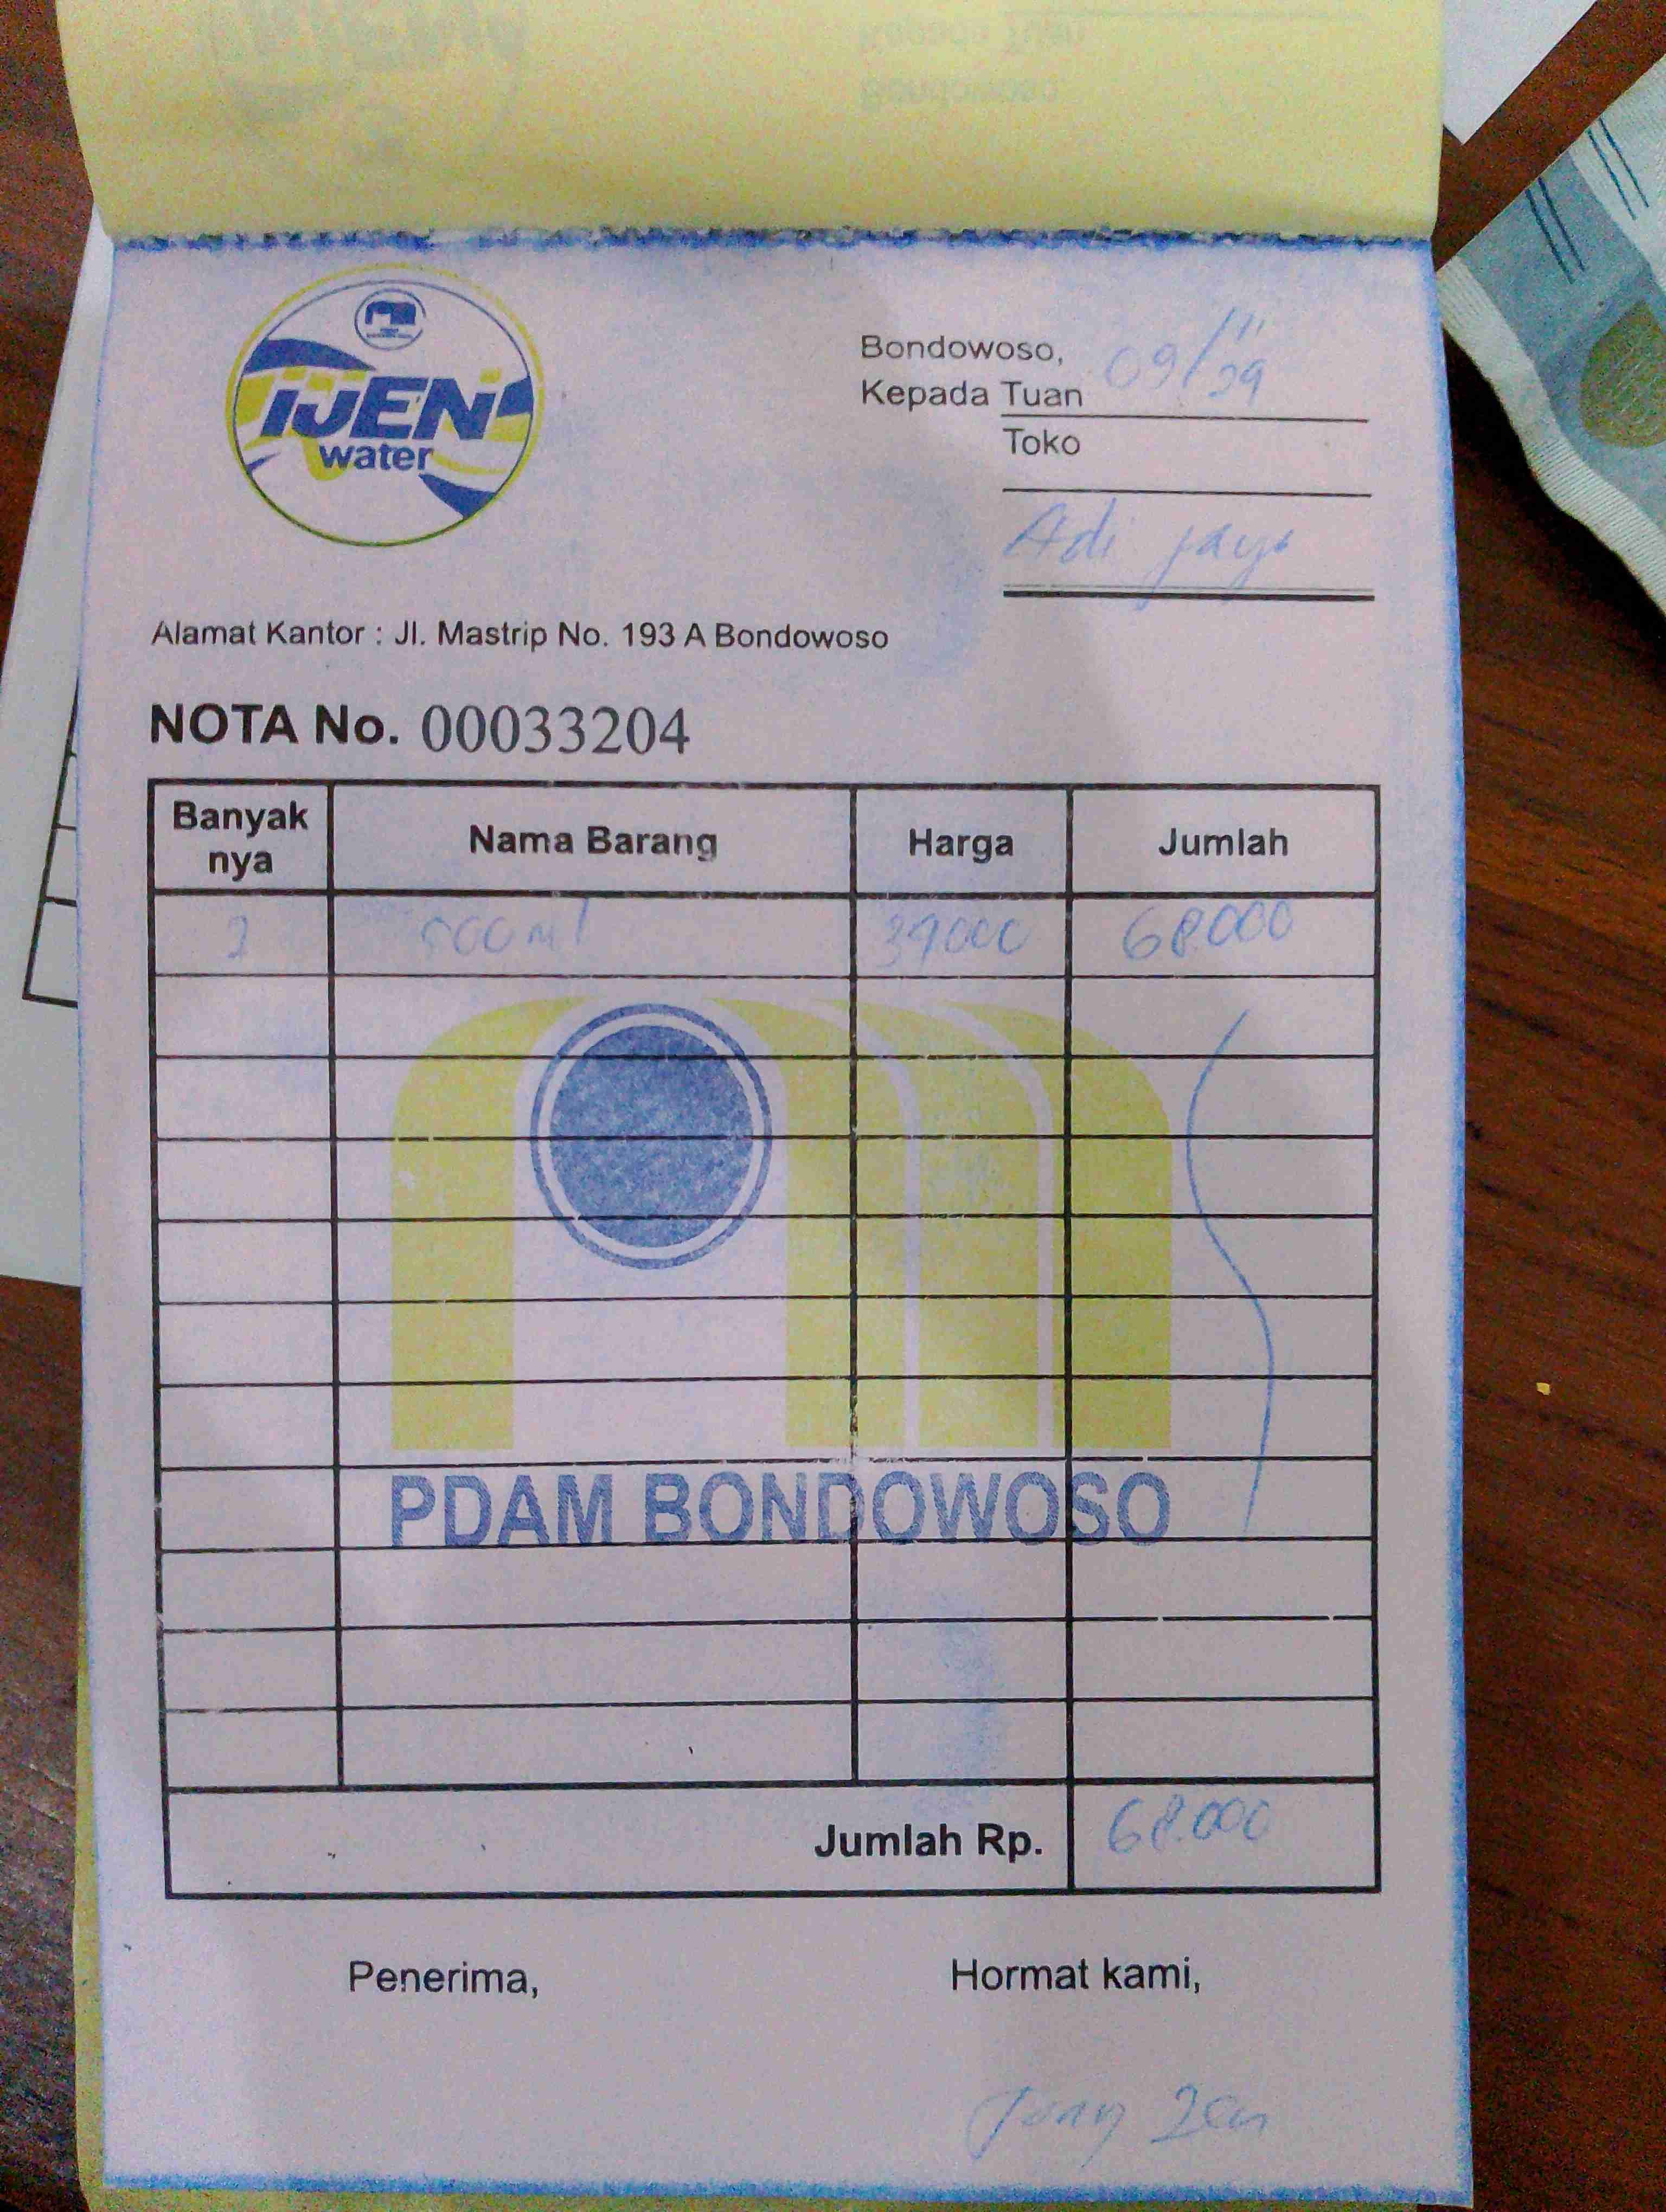 IJEN
water
Bondowoso, 09/11
Kepada Tuan
Toko
Adi jaya
Alamat Kantor : Jl. Mastrip No. 193 A Bondowoso
NOTA No. 00033204
Banyak nya Nama Barang Harga Jumlah
2 600 ml 34000 68000
PDAM BONDOWOSO
Jumlah Rp. 68.000
Penerima, Hormat kami,